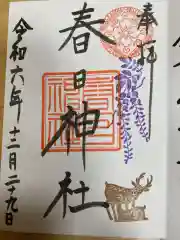 奉拝
春日神社
令和六年十二月二十九日